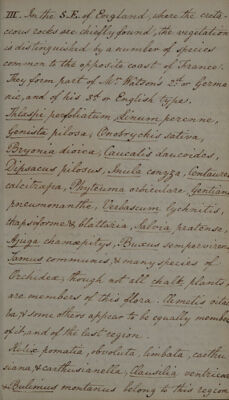 III. In the S.E. of England, where the creta-
cious rocks are chiefly found, the vegetation
is distinguished by a number of species
common to the opposite coast of France.
They form part of Mr. Watson's 2d. or Germa-
nic, and of his 3d. or English types.
Thlaspi perfoliatum, Linum perenne,
Genista pilosa, Onobrychis sativa,
Bryonia dioica, Caucalis daucoides,
Dipsacus pilosus, Inula conyza, Centaurea
calcitrapa, Phyteuma orbiculare, Gentiana
pneumonanthe, Verbascum lychnitis,
thapsiforme & blattaria, Salvia pratense,
Ajuga chamæpitys, Buxus sempervirens
Tamus communis, & many species of
Orchideæ, though not all chalk plants,
are members of this flora. Clematis vital-
ba & some others appear to be equally members
of it, and of the last region.
Helix pomatia, obvoluta, limbata, carthu-
siana & carthusianella, Clausilia ventricosa
& Bulimus montanus belong to this region